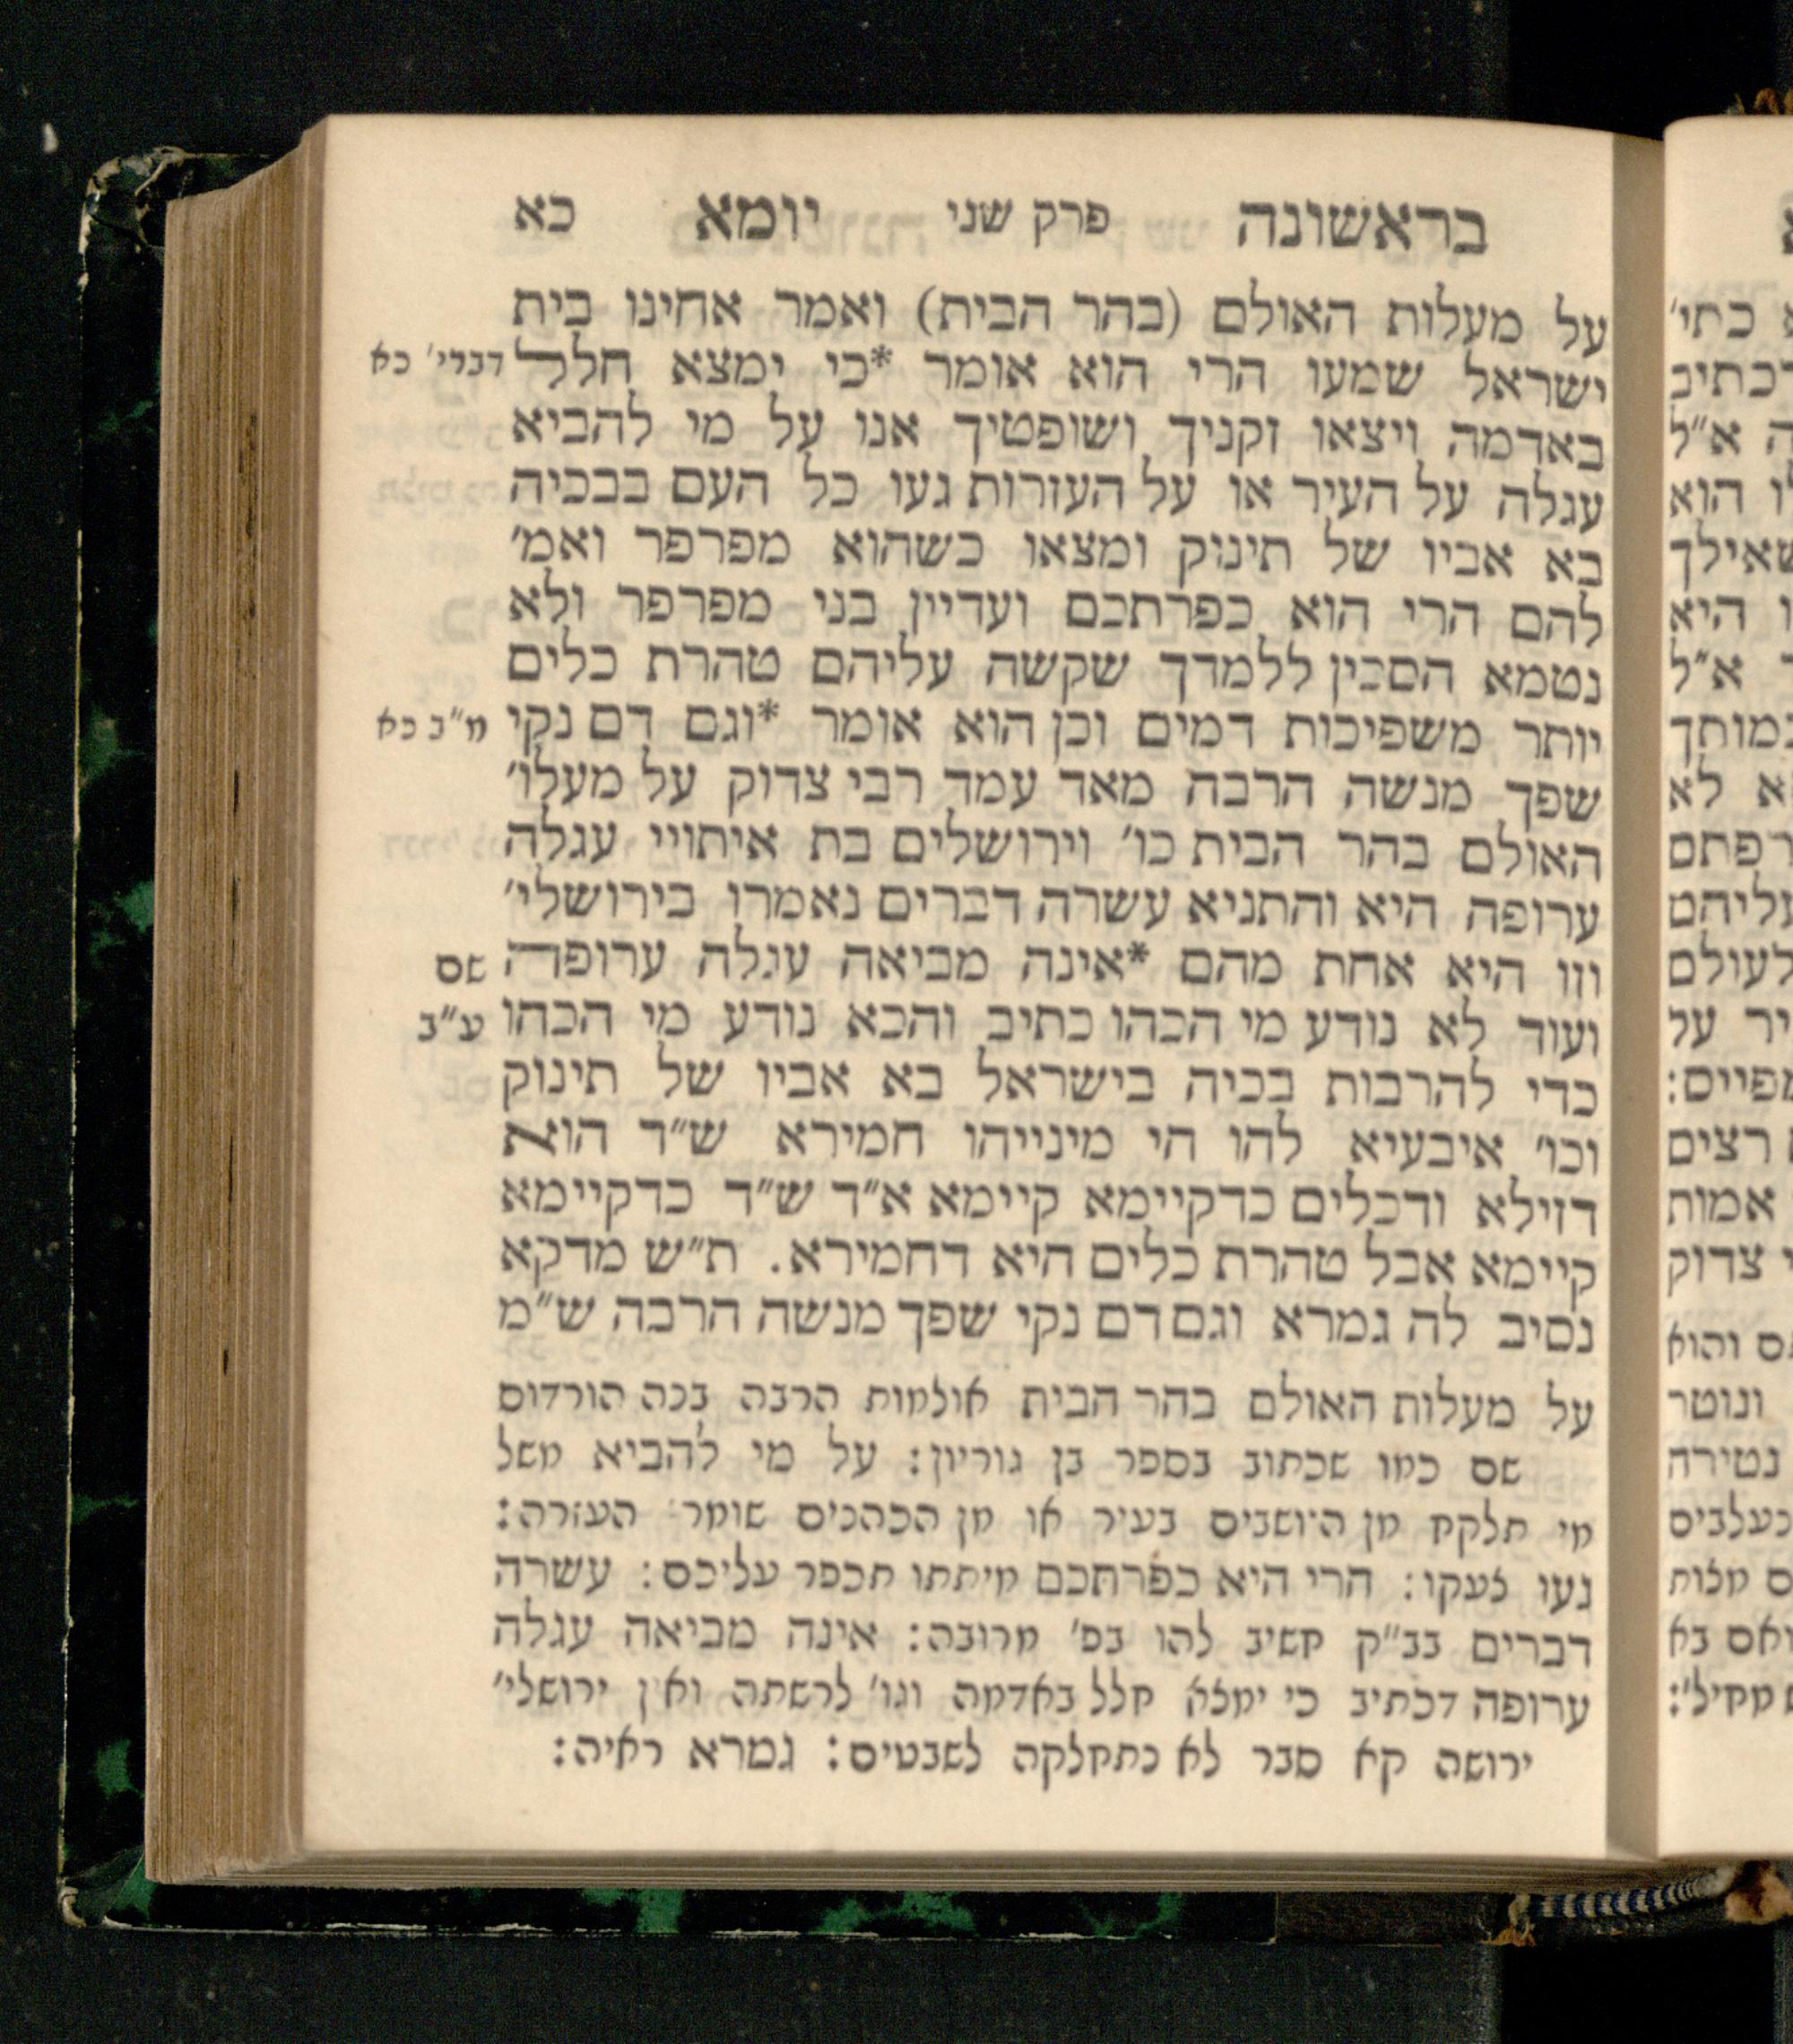 בראשונה פרק שני יומא כא
על מעלות האולם (בהר הבית) ואמר אחינו בית
ישראל שמעו הרי הוא אומר *כי ימצא חלל דברי׳ כא
באדמה ויצאו זקניך ושופטיך אנו על מי להביא
עגלה על העיר או על העזרות געו כל העם בבכיה
בא אביו של תינוק ומצאו כשהוא מפרפר ואמ׳
להם הרי הוא כפרתכם ועדיין בני מפרפר ולא
נטמא הסכין ללמדך שקשה עליהם טהרת כלים
יותר משפיכות דמים וכן הוא אומר *וגם דם נקי מ״ב כא
שפך מנשה הרבה מאד עמד רבי צדוק על מעלו׳
האולם בהר הבית כו׳ וירושלים בת איתויי עגלה
ערופה היא והתניא עשרה דברים נאמרו בירושלי׳
וזו היא אחת מהם *אינה מביאה עגלה ערופה שם
ועוד לא נודע מי הכהו כתיב והכא נודע מי הכהו ע״ב
כדי להרבות בכיה בישראל בא אביו של תינוק
וכו׳ איבעיא להו הי מינייהו חמירא ש״ד הוא
דזילא ודכלים כדקיימא קיימא א״ד ש״ד כדקיימא
קיימא אבל טהרת כלים היא דחמירא. ת״ש מדקא
נסיב לה גמרא וגם דם נקי שפך מנשה הרבה ש״מ
על מעלות האולם בהר הבית אולמות הרבה בנה הורדוס
שם כמו שכתוב בספר בן גוריון: על מי להביא משל
מי תלקח מן היושבים בעיר או מן הכהנים שומרי העזרה:
געו צעקו: הרי היא כפרתכם מיתתו תכפר עליכם: עשרה
דברים בב״ק חשיב להו בפ׳ מרובה: אינה מביאה עגלה
ערופה דכתיב כי ימצא חלל באדמה וגו׳ לרשתה ואין ירושלי׳
ירושה קא סבר לא נתחלקה לשבטים: גמרא ראיה: